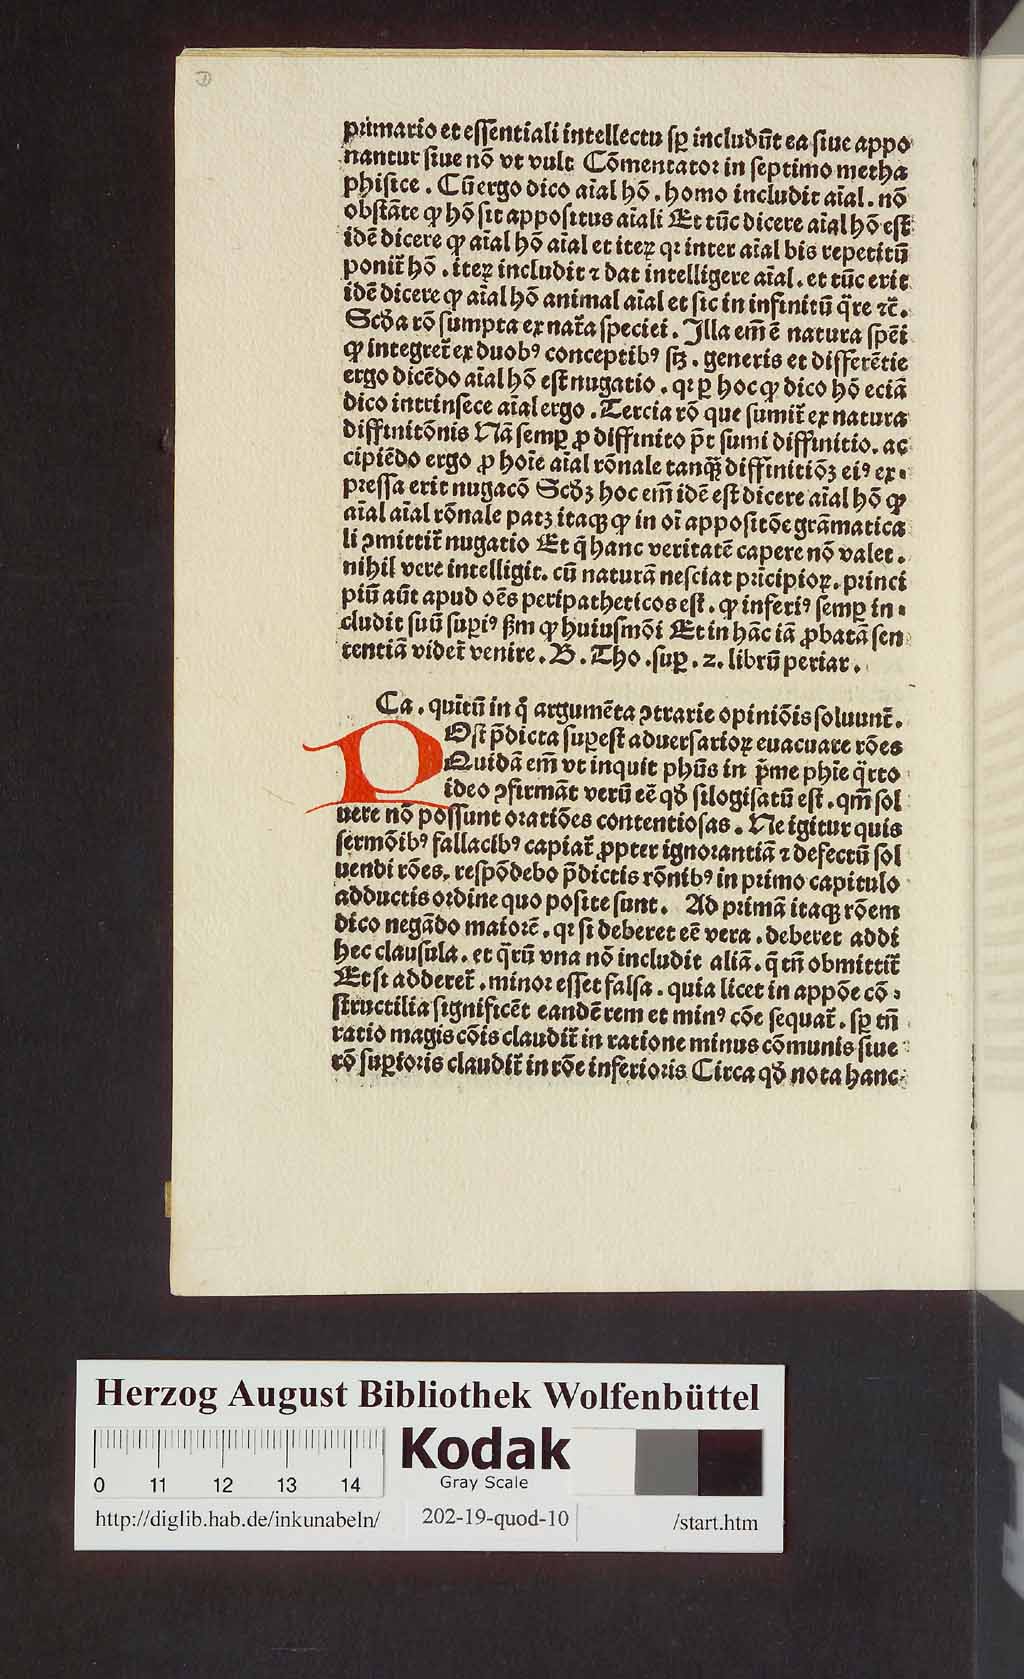 primario et essentiali intellectu sꝑ includūt ea siue appo
nantur siue nō vt vult Cōmentator in septimo metha
phisice. Cū ergo dico aīal hō. homo includit aīal. nō
obstāte ꝙ hō sit appositus aīali Et tūc dicere aīal hō est
idē dicere ꝙ aīal hō aīal et iteꝝ qꝛ inter aīal bis repetitū
ponit̃ hō. iteꝝ includit ⁊ dat intelligere aīal. et tūc erit
idē dicere ꝙ aīal hō animal aīal et sic in infinitū q̄re ⁊c̃.
Scd̄a rō sumpta ex nat̃a speciei. Illa em̄ ē natura spēi
ꝙ integret̃ ex duobꝰ conceptibꝰ sꝫ. generis et differētie
ergo dicēdo aīal hō est nugatio. qꝛ ꝑ hoc ꝙ dico hō eciā
dico intrinsece aīal ergo. Tercia rō que sumit̃ ex natura
diffinitōnis Nā semꝑ ꝓ diffinito p̄t sumi diffinitio. ac
cipiēdo ergo ꝓ hoīe aīal rōnale tanqꝫ̄ diffinitiōꝫ eiꝰ ex-
pressa erit nugacō Scd̄ꝫ hoc em̄ idē est dicere aīal hō ꝙ
aīal aīal rōnale patꝫ itaqꝫ ꝙ in oī appositōe grāmatica
li ↄmittit̃ nugatio Et q̄ hanc veritatē capere nō valet.
nihil vere intelligit. cū naturā nesciat prīcipioꝝ. princi
piū aūt apud oēs peripatheticos est. ꝙ inferiꝰ semꝑ in-
cludit suū suꝑiꝰ ẜm ꝙ huiusmōi Et in hāc iā ꝓbatā sen
tentiā videt̃ venire. B. Tho. suꝑ. 2. librū periar.
Ca. quītū in q̊ argumēta ↄtrarie opiniōis soluunt̃.
POst p̄dicta suꝑest aduersarioꝝ euacuare rōes
Quidā em̄ vt inquit phūs in p̄me phīe q̄rto
ideo ↄfirmāt verū eē qd̄ silogisatū est. qm̄ sol
uere nō possunt oratiōes contentiosas. Ne igitur quis
sermōibꝰ fallacibꝰ capiat̃ ꝓpter ignorantiā ⁊ defectū sol
uendi rōes, respōdebo p̄dictis rōnibꝰ in primo capitulo
adductis ordine quo posite sunt. Ad primā itaqꝫ rōem
dico negādo maiorē. qꝛ si deberet eē vera. deberet addi
hec clausula. et q̄rū vna nō includit aliā. q̄ tn̄ obmittit̃
Et si adderet̃. minor esset falsa. quia licet in appōe cō-
structilia significēt eandē rem et minꝰ cōe sequat̃. sꝑ tn̄
ratio magis cōis claudit̃ in ratione minus cōmunis siue
rō suꝑioris claudit̃ in rōe inferioris Circa qd̄ nota hanc
Herzog August Bibliothek Wolfenbüttel
Kodak
Gray Scale
0 11 12 13 14
http://diglib.hab.de/inkunabeln/ 202-19-quod-10 /start.htm